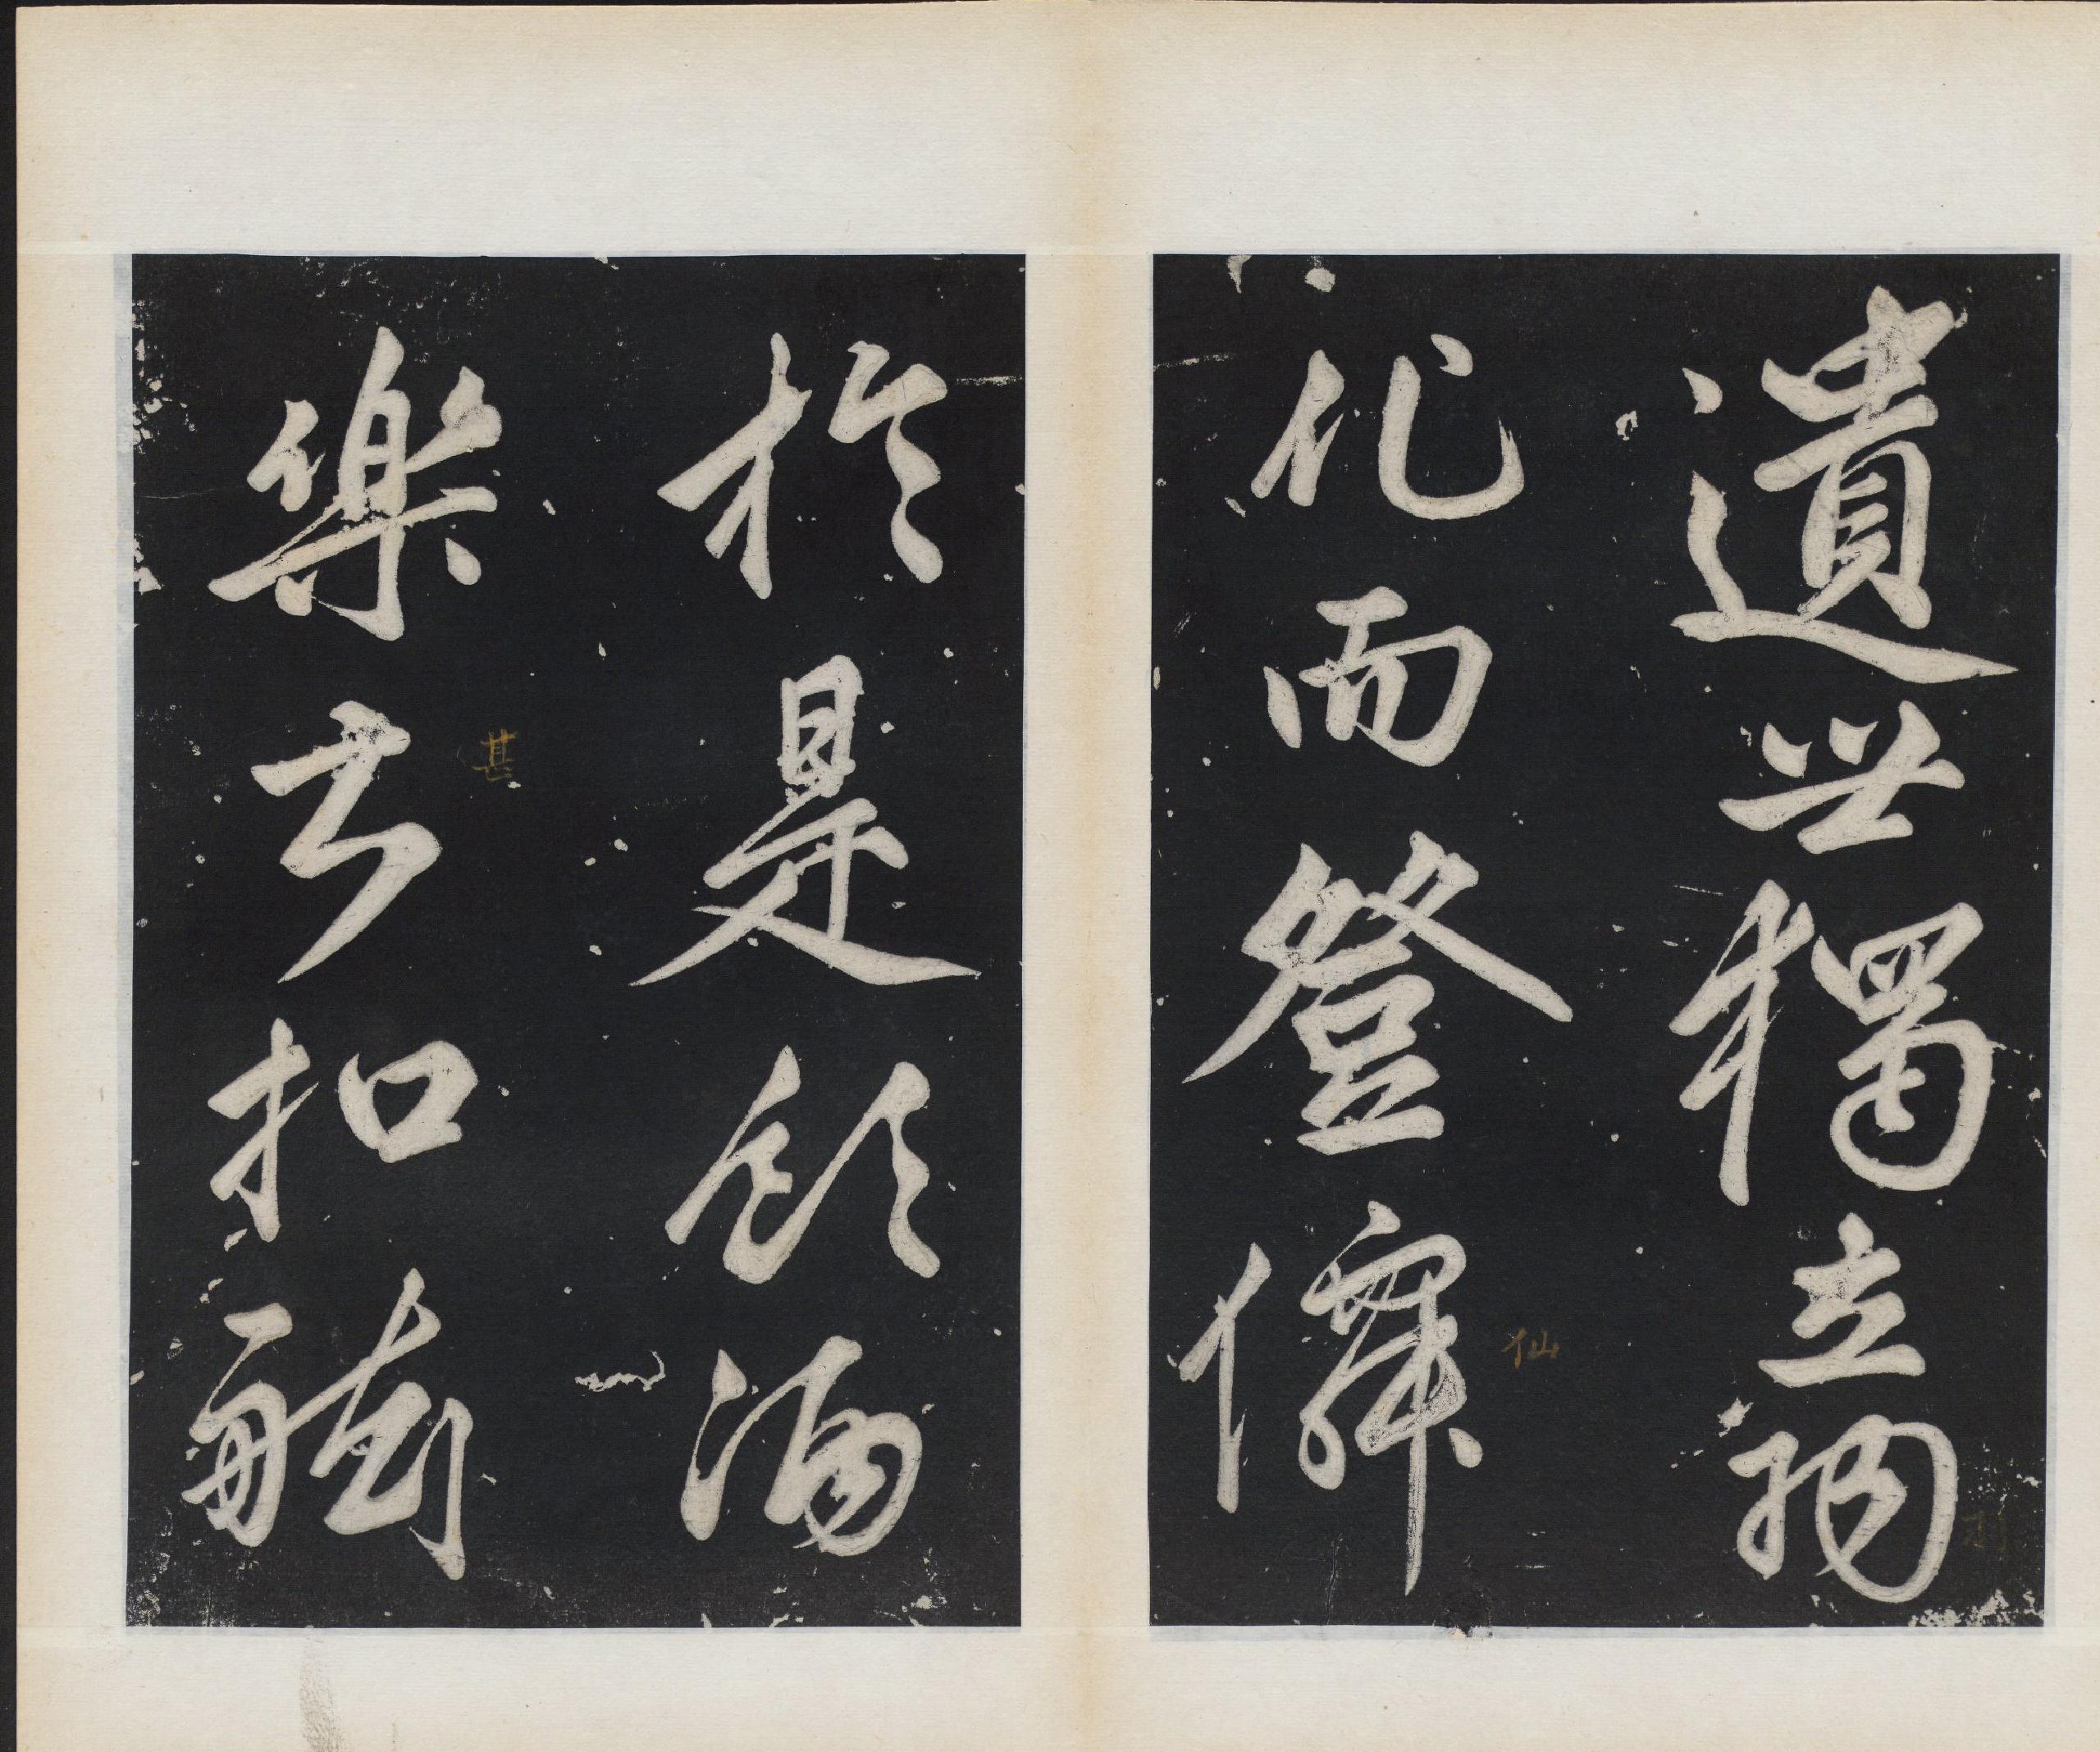 遺世獨立羽
羽
化而登僊
仙
於是飲酒
樂甚扣舷
甚